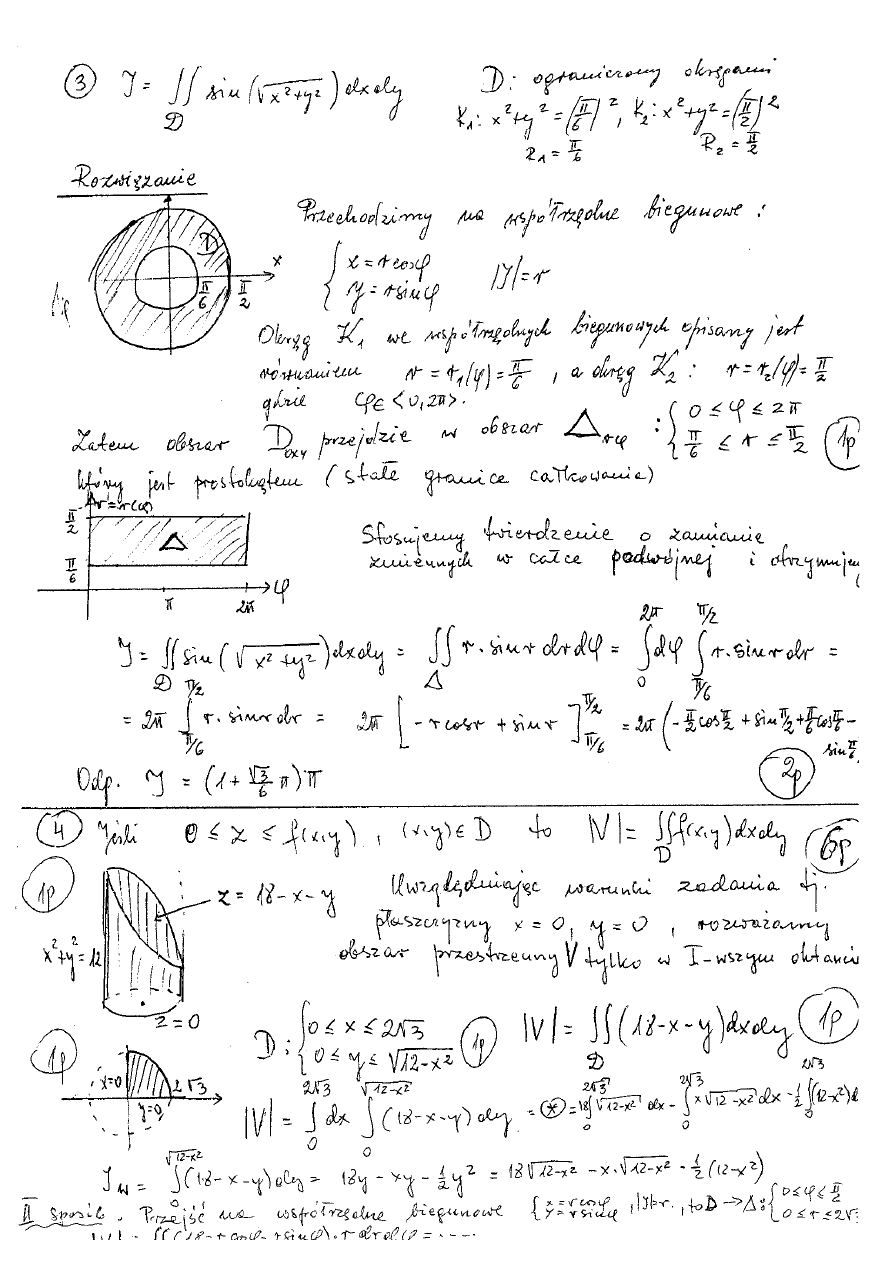 ③ J = ∬_D sin(√(x²+y²)) dxdy   D: ograniczony okręgami
K₁: x²+y² = (π/6)², K₂: x²+y² = (π/2)²
R₁ = π/6   R₂ = π/2
Rozwiązanie
Przechodzimy na współrzędne biegunowe :
D   x   π/6   π/2
{ x = r cosφ   |J| = r
{ y = r sinφ
Okrąg K₁ we współrzędnych biegunowych opisany jest
równaniem r = r₁(φ) = π/6 , a okrąg K₂ : r = r₂(φ) = π/2
gdzie φ∈<0,2π>.
Zatem obszar D_oxy przejdzie w obszar Δ_rφ : { 0 ≤ φ ≤ 2π   π/6 ≤ r ≤ π/2   1p
który jest prostokątem (stałe granice całkowania)
π/2   Δ   π/6   π   2π   φ
Stosujemy twierdzenie o zamianie
zmiennych w całce podwójnej i otrzymujemy
J = ∬_D sin(√(x²+y²)) dxdy = ∬_Δ r·sin r dr dφ = ∫₀^{2π} dφ ∫_{π/6}^{π/2} r·sin r dr =
= 2π ∫_{π/6}^{π/2} r·sin r dr = 2π [-r cos r + sin r]_{π/6}^{π/2} = 2π (-π/2 cos π/2 + sin π/2 + π/6 cos π/6 -
sin π/6
2p
Odp. J = (1 + √3/6 π) π
④ Jeśli 0 ≤ z ≤ f(x,y) , (x,y) ∈ D to |V| = ∬_D f(x,y) dxdy   6p
1p
z = 18-x-y   Uwzględniając warunki zadania tj.
płaszczyzny x = 0, y = 0 , rozważamy
x²+y² = 12   obszar przestrzenny V tylko w I-wszym oktancie
z = 0
1p   D : { 0 ≤ x ≤ 2√3   0 ≤ y ≤ √(12-x²)   1p   |V| = ∬_D (18-x-y) dxdy   1p
x=0   2√3   y=0
|V| = ∫₀^{2√3} dx ∫₀^{√(12-x²)} (18-x-y) dy = (*) = 18 ∫₀^{2√3} √(12-x²) dx - ∫₀^{2√3} x√(12-x²) dx - ½ ∫₀^{2√3} (12-x²) d
J_w = ∫₀^{√(12-x²)} (18-x-y) dy = 18y - xy - ½y² = 18√(12-x²) - x·√(12-x²) - ½(12-x²)
II sposób. Przejść na współrzędne biegunowe { x = r cosφ   y = r sinφ , |J|=r , to D → Δ: { 0 ≤ φ ≤ π/2   0 ≤ r ≤ 2√3
|V| = ∬(18 - r cosφ - r sinφ)·r dr dφ = ....